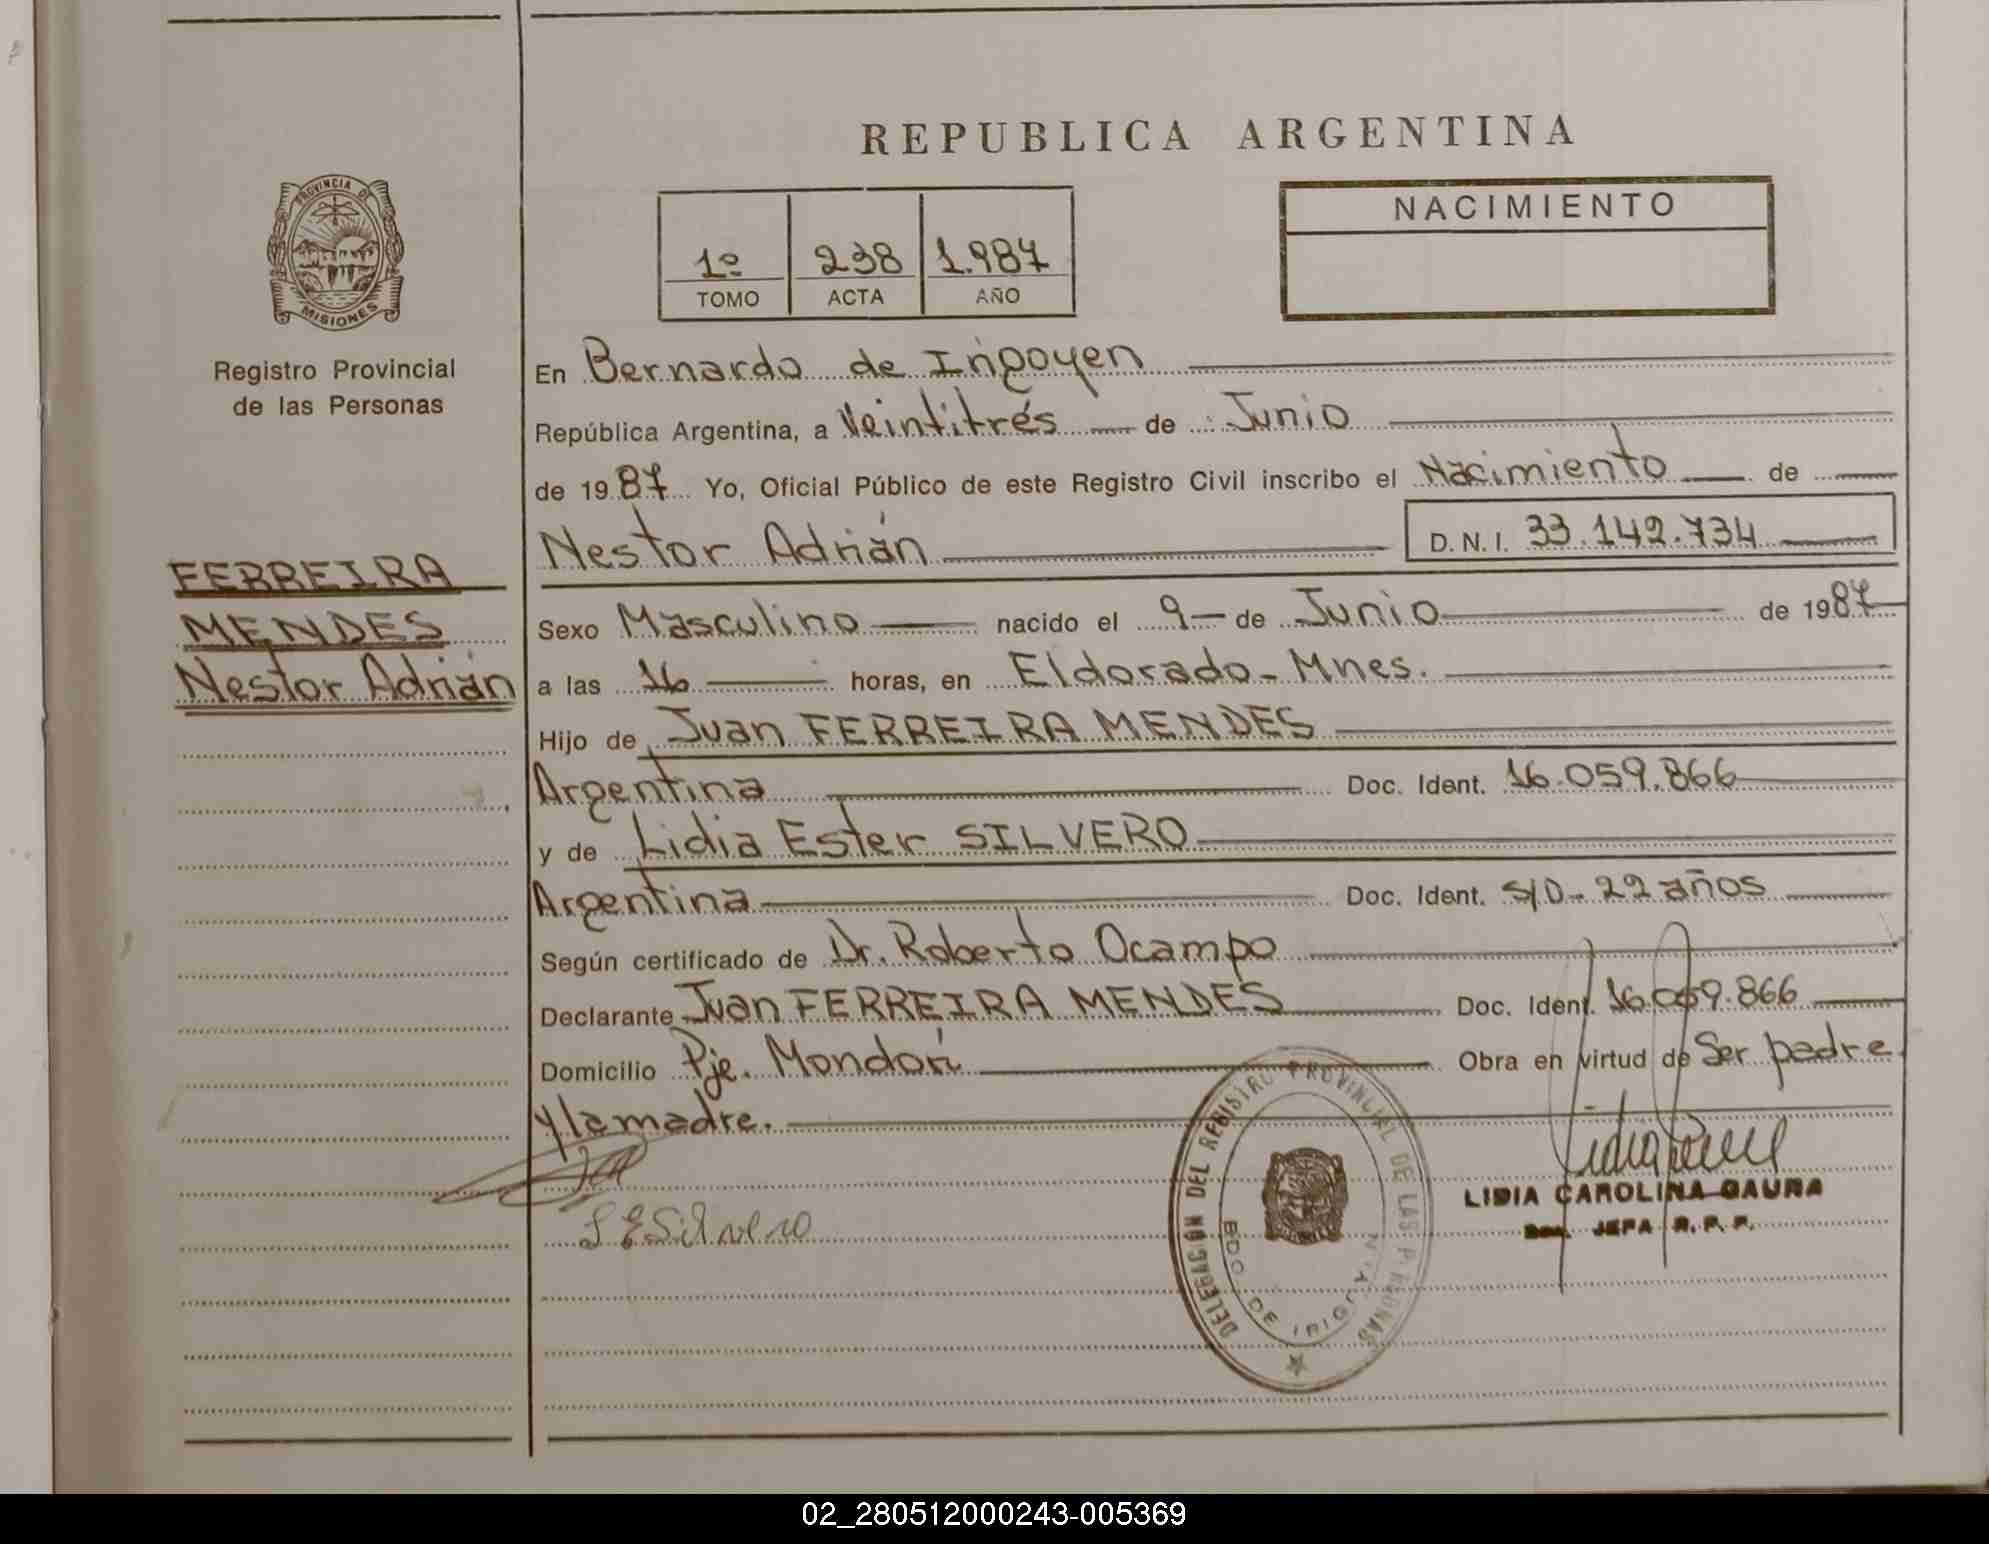 REPUBLICA ARGENTINA
PROVINCIA DE
MISIONES
Registro Provincial
de las Personas
1º 238 1.987
TOMO ACTA AÑO
NACIMIENTO
En Bernardo de Irigoyen
República Argentina, a Veintitrés de Junio
de 1987 Yo, Oficial Público de este Registro Civil inscribo el Nacimiento de
Nestor Adrián D.N.I. 33.142.734
FERREIRA
MENDES
Nestor Adrián
Sexo Masculino nacido el 9 de Junio de 1987
a las 16 horas, en Eldorado - Mnes.
Hijo de Juan FERREIRA MENDES
Argentina Doc. Ident. 16.059.866
y de Lidia Ester SILVERO
Argentina Doc. Ident. S/D - 22 años
Según certificado de Dr. Roberto Ocampo
Declarante Juan FERREIRA MENDES Doc. Ident. 16.059.866
Domicilio Pje. Mondorí Obra en virtud de Ser padre
y la madre.
L E Silvero
DELEGACION DEL REGISTRO PROVINCIAL DE LAS PERSONAS
BDO DE IRIGOYEN
LIDIA CAROLINA GAUNA
JEFA R. P. P.
02_280512000243-005369